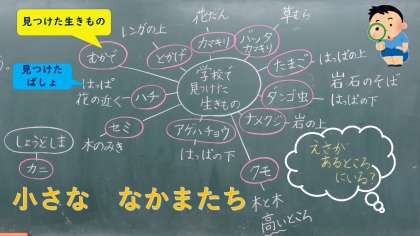 見つけた生きもの
見つけた
ばしょ
花だん
草むら
レンガの上
カマキリ
バッタ
カマキリ
むかで
とかげ
たまご
はっぱの上
学校で
見つけた
生きもの
はっぱ
花の近く
ハチ
ダンゴ虫
岩石のそば
はっぱの下
ナメクジ
岩の上
セミ
木のみき
アゲハチョウ
はっぱの下
しょうどしま
カニ
クモ
木と木
高いところ
えさが
あるところ
にいる?
小さな なかまたち